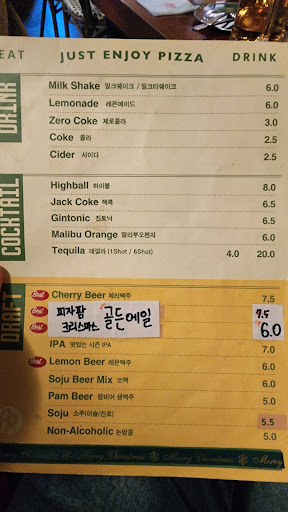 EAT JUST ENJOY PIZZA DRINK
DRINK
Milk Shake 밀크쉐이크 / 밀크티쉐이크 6.0
Lemonade 레몬에이드 6.0
Zero Coke 제로콜라 3.0
Coke 콜라 2.5
Cider 사이다 2.5
COCKTAIL
Highball 하이볼 8.0
Jack Coke 잭콕 6.5
Gintonic 진토닉 6.5
Malibu Orange 말리부오렌지 6.0
Tequila 데낄라 (1Shot / 6Shot) 4.0 20.0
DRAFT
Best Cherry Beer 체리맥주 7.5
Best 피자팜 크리스마스 골든에일 7.5 6.0
Best
IPA 맛있는 시즌 IPA 7.0
Best Lemon Beer 레몬맥주 6.0
Soju Beer Mix 쏘맥 6.0
Pam Beer 팜비어 생맥주 5.0
Soju 소주(이슬/진로) 5.5
Non-Alcoholic 논알콜 5.0
Merry Christmas Merry Christmas Merry